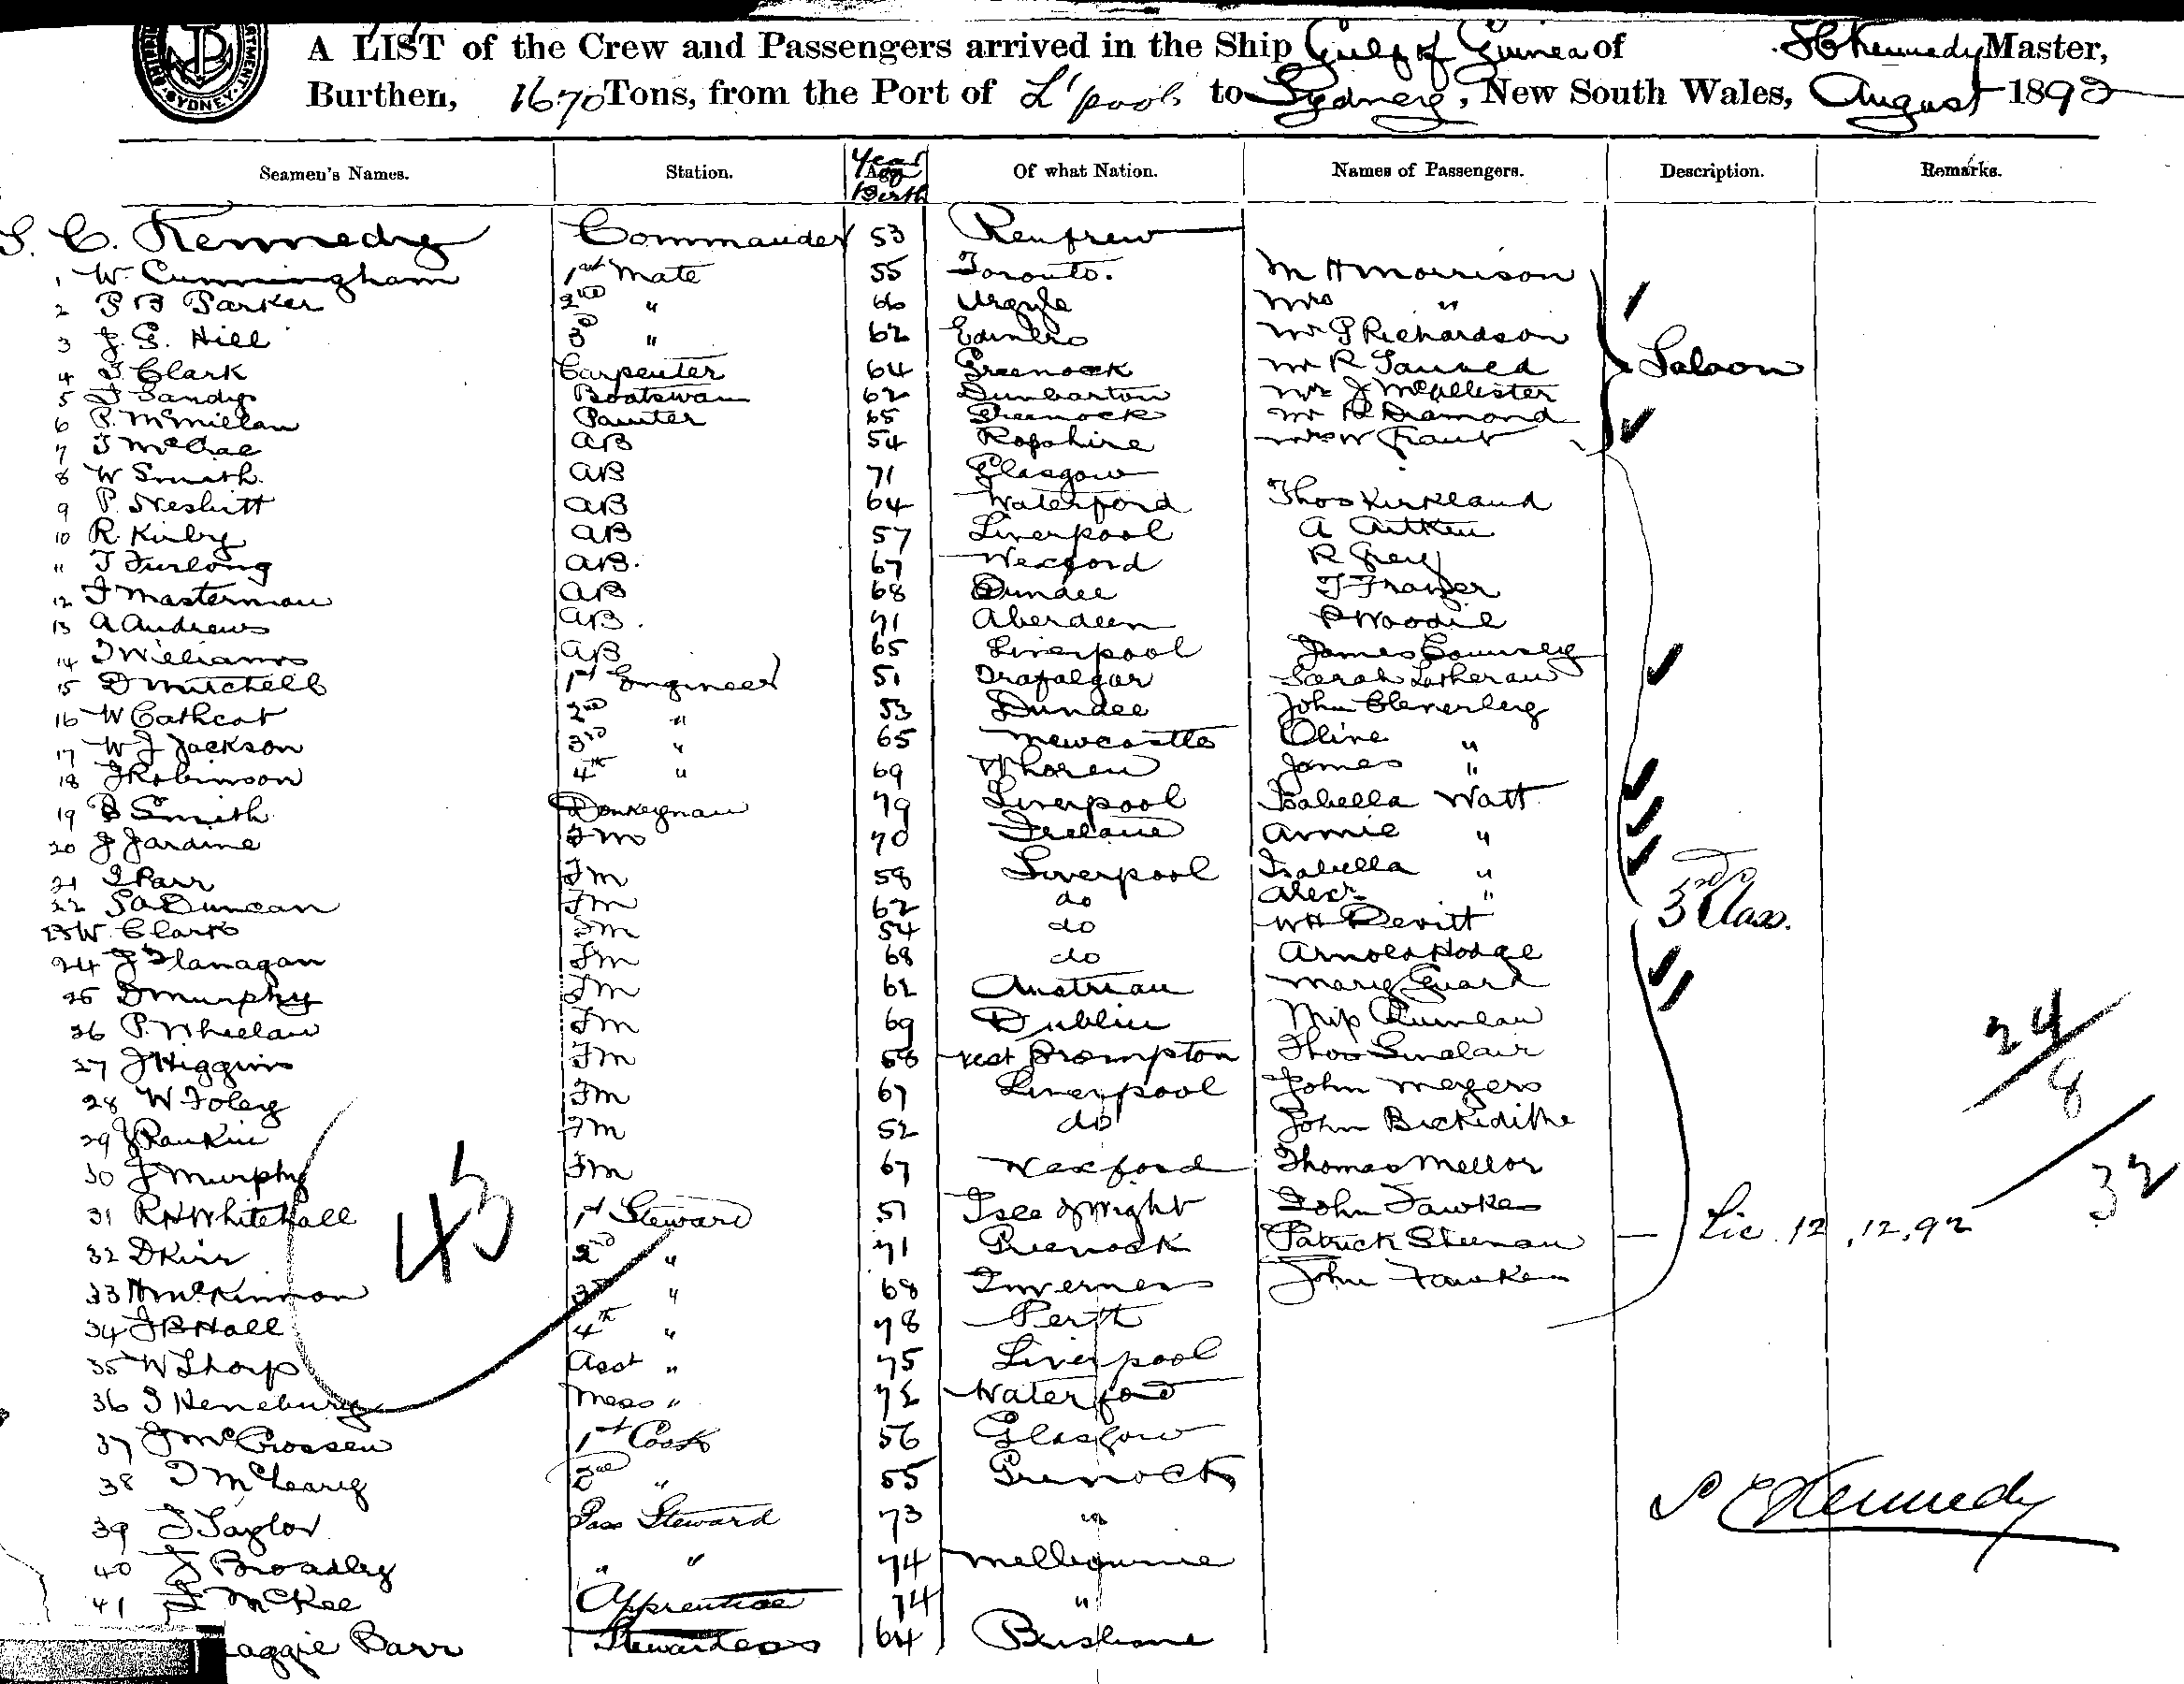 A LIST of the Crew and Passengers arrived in the Ship Gulf of Guinea of S C Kennedy Master,
Burthen, 1670 Tons, from the Port of L'pool to Sydney, New South Wales, August 1892
SYDNEY
Seamen's Names. Station. Year Age Birth Of what Nation. Names of Passengers. Description. Remarks.
S. C. Kennedy Commander 53 Renfrew
1 W. Cunningham 1st Mate 55 Toronto. M H Morrison
2 P B Parker 2nd " 66 Argyle Mrs "
3 J. G. Hill 3d " 62 Edinbro Mr P Richardson
4 T Clark Carpenter 64 Greenock Mr R Saused Saloon
5 J Sandys Boatswain 62 Dunbarton Mr J McAllister
6 P. McMillan Painter 65 Greenock Mr R Diamond
7 J McCrae AB 54 Rosshire Mrs W Grant
8 W Smith AB 71 Glasgow
9 P. Nesbitt AB 64 Waterford Thos Kirkland
10 R. Kirby AB 57 Liverpool A Aitken
11 J Furlong AB. 67 Wexford R Grey
12 J Masterman AB 68 Dundee T Frazer
13 A Andrews AB. 71 Aberdeen P Woodie
14 J Williams AB 65 Liverpool James
15 D Mitchell 1st Engineer 51 Trafalgar Sarah
16 W Cathcat 2nd " 53 Dundee John Cleverley
17 W J Jackson 3rd " 65 Newcastle Olive "
18 J Robinson 4th " 69 James "
19 B Smith Donkeyman 79 Liverpool Isabella Watt
20 J Jardine Fm 70 Ireland Annie "
21 J Parr Fm 58 Liverpool Isabella "
22 Duncan Fm 62 do Alexr "
23 W. Clark Fm 54 do W H Devitt 3rd Class.
24 J Flanagan Fm 68 do Arnold Hodge
25 D Murphy Fm 62 Austrian Mary Guard
26 P. Whelan Fm 69 Dublin Miss
27 J Higgins Fm 58 West Brompton Thos Sinclair 24/8
28 W Foley Fm 67 Liverpool John Meyers
29 J Rankin Fm 52 do John Bickerdithe
30 J Murphy Fm 67 Wexford Thomas Mellor 32
31 R H Whitehall 1st Steward 51 Isle of Wight John Fawkes
32 D Kerr 2nd " 71 Greenock Patrick Sheenan Lic. 12, 12, 92
33 H McKinnon 3rd " 68 Inverness John Fawkes
43
34 J B Hall 4th " 78 Perth
35 W Thorp Asst " 75 Liverpool
36 J Henebury Mess " 72 Waterford
37 J McCrossen 1st Cook 56 Glasgow
38 J McLeary 2nd " 55 Grenock S C Kennedy
39 J Taylor Pass Steward 73 "
40 J Broadley " " 74 Melbourne
41 J McKee Apprentice 74 "
aggie Barr Stewardess 64 Brisbane